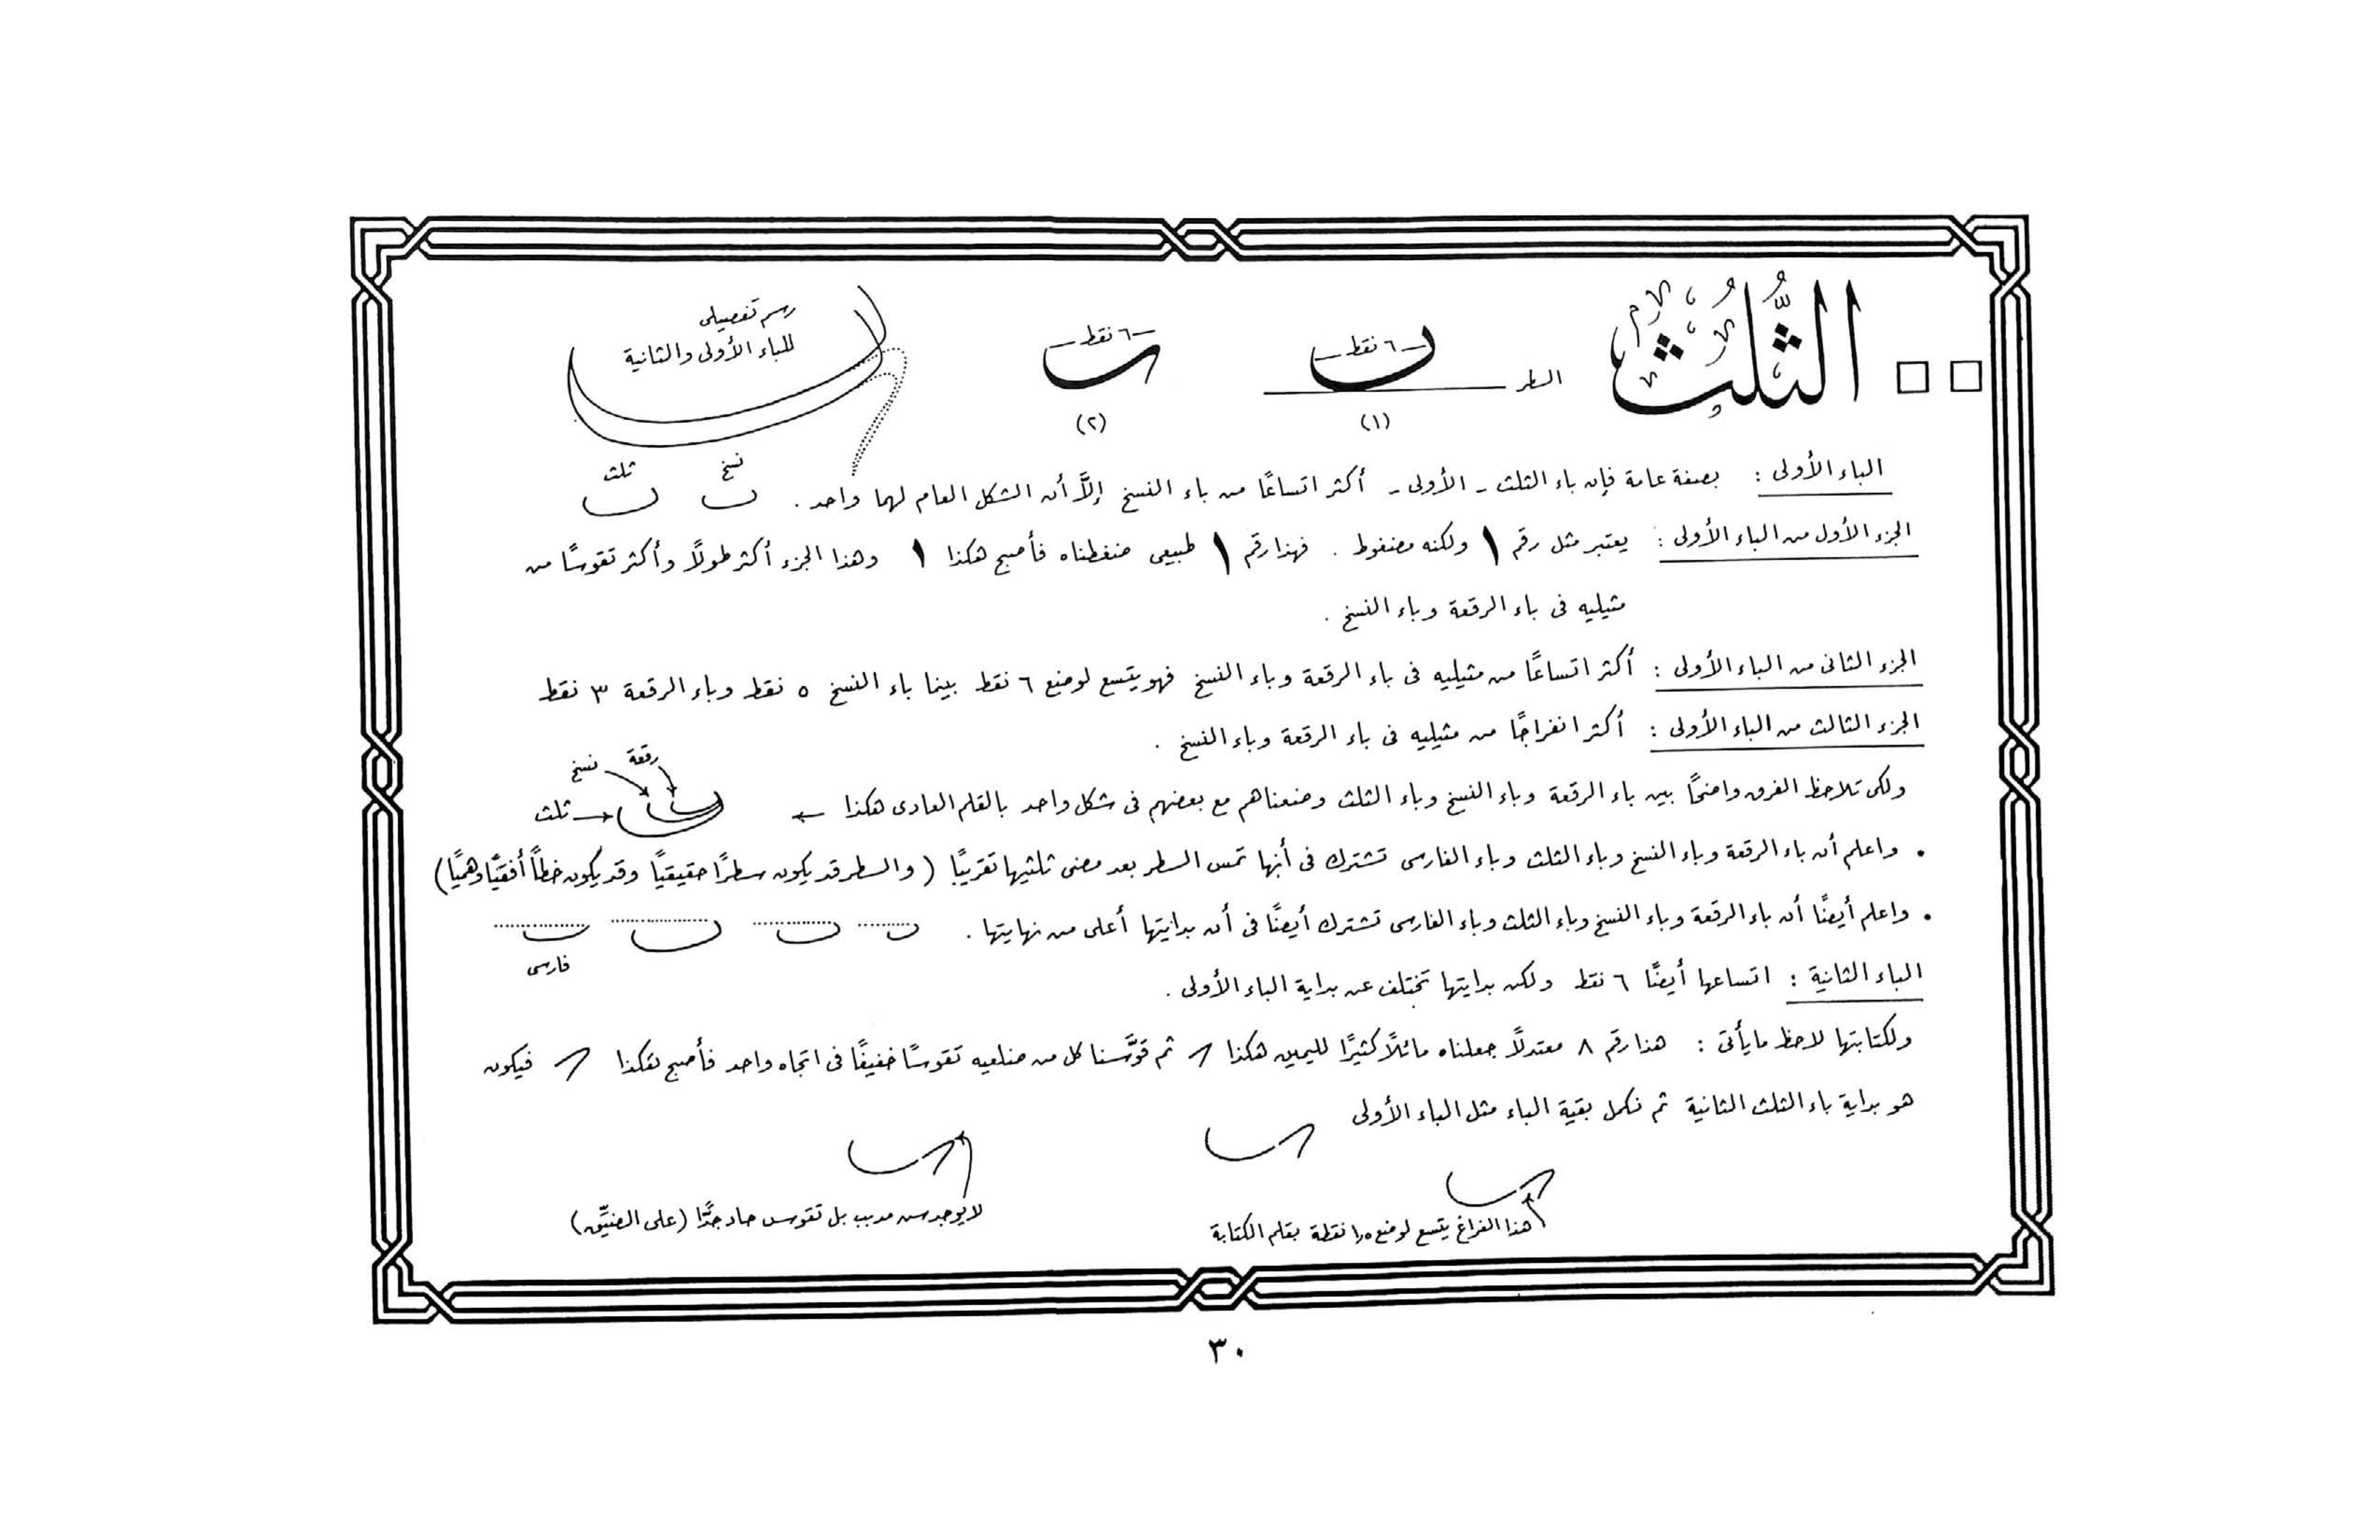 الثُّلُث
السطر
٦ نقط
(١)
٦ نقط
(٢)
رسم تفصيلى
للباء الأولى والثانية
الباء الأولى : بصفة عامة فإن باء الثلث - الأولى - أكثر اتساعًا من باء النسخ إلاَّ أن الشكل العام لهما واحد .
نسخ
ثلث
الجزء الأول من الباء الأولى : يعتبر مثل رقم ١ ولكنه مضغوط . فهذا رقم ١ طبيعى ضغطناه فأصبح هكذا ١ وهذا الجزء أكثر طولاً وأكثر تقوسًا من
مثيليه فى باء الرقعة وباء النسخ .
الجزء الثانى من الباء الأولى : أكثر اتساعًا من مثيليه فى باء الرقعة وباء النسخ فهو يتسع لوضع ٦ نقط بينما باء النسخ ٥ نقط وباء الرقعة ٣ نقط
الجزء الثالث من الباء الأولى : أكثر انفراجًا من مثيليه فى باء الرقعة وباء النسخ .
ولكى تلاحظ الفرق واضحًا بين باء الرقعة وباء النسخ وباء الثلث وضعناهم مع بعضهم فى شكل واحد بالقلم العادى هكذا ←
رقعة
نسخ
ثلث
• واعلم أن باء الرقعة وباء النسخ وباء الثلث وباء الفارسى تشترك فى أنها تمس السطر بعد مضى ثلثيها تقريبًا ( والسطر قد يكون سطرًا حقيقيًا وقد يكون خطاً أفقيًّا وهميًا )
• واعلم أيضًا أن باء الرقعة وباء النسخ وباء الثلث وباء الفارسى تشترك أيضًا فى أن بدايتها أعلى من نهايتها .
فارسى
الباء الثانية : اتساعها أيضًا ٦ نقط ولكن بدايتها تختلف عن بداية الباء الأولى .
ولكتابتها لاحظ مايأتى : هذا رقم ٨ معتدلاً جعلناه مائلاً كثيرًا لليمين هكذا ٨ ثم قوَّسنا كل من ضلعيه تقوسًا خفيفًا فى اتجاه واحد فأصبح هكذا فيكون
هو بداية باء الثلث الثانية ثم نكمل بقية الباء مثل الباء الأولى
هذا الفراغ يتسع لوضع ١٫٥ نقطة بقلم الكتابة
لا يوجد سن مدبب بل تقوس حاد جدًّا (على الضيِّق)
٣٠